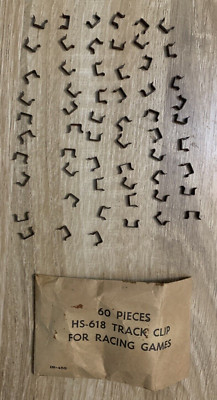 60 PIECES
HS-618 TRACK CLIP
FOR RACING GAMES